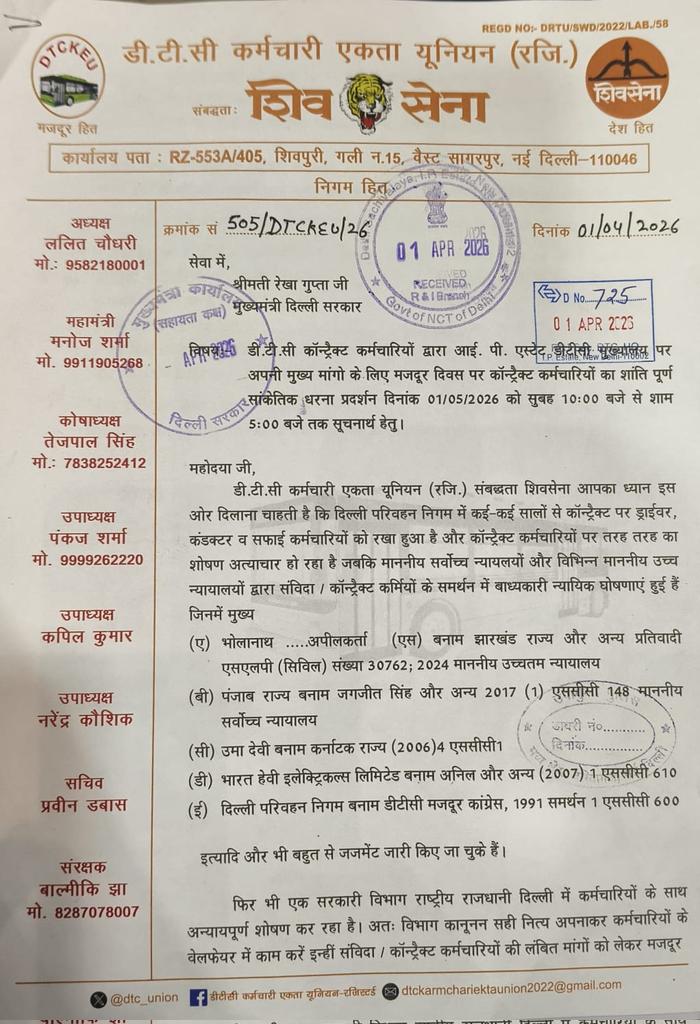 REGD NO:- DRTU/SWD/2022/LAB./58
DTCKEU
डी.टी.सी कर्मचारी एकता यूनियन (रजि.)
संबद्धताः शिव सेना
शिवसेना
मजदूर हित
देश हित
कार्यालय पता : RZ-553A/405, शिवपुरी, गली न.15, वैस्ट सागरपुर, नई दिल्ली–110046
निगम हित
अध्यक्ष
ललित चौधरी
मो.: 9582180001
महामंत्री
मनोज शर्मा
मो. 9911905268
कोषाध्यक्ष
तेजपाल सिंह
मो.: 7838252412
उपाध्यक्ष
पंकज शर्मा
मो. 9999262220
उपाध्यक्ष
कपिल कुमार
उपाध्यक्ष
नरेंद्र कौशिक
सचिव
प्रवीन डबास
संरक्षक
बाल्मीकि झा
मो. 8287078007
क्रमांक सं 505/DTCKEU/26
दिनांक 01/04/2026
सेवा में,
श्रीमती रेखा गुप्ता जी
मुख्यमंत्री दिल्ली सरकार
01 APR 2026
RECEIVED
R & I Branch
Govt of NCT of Delhi
D No. 725
01 APR 2026
I.P. Estate, New Delhi-110002
मुख्यमंत्री कार्यालय
(सहायता कक्ष)
APR 2026
दिल्ली सरकार
विषयः डी.टी.सी कॉन्ट्रैक्ट कर्मचारियों द्वारा आई. पी. एस्टेट डीटीसी मुख्यालय पर
अपनी मुख्य मांगो के लिए मजदूर दिवस पर कॉन्ट्रैक्ट कर्मचारियों का शांति पूर्ण
सांकेतिक धरना प्रदर्शन दिनांक 01/05/2026 को सुबह 10:00 बजे से शाम
5:00 बजे तक सूचनार्थ हेतु।
महोदया जी,
डी.टी.सी कर्मचारी एकता यूनियन (रजि.) संबद्धता शिवसेना आपका ध्यान इस
ओर दिलाना चाहती है कि दिल्ली परिवहन निगम में कई-कई सालों से कॉन्ट्रैक्ट पर ड्राईवर,
कंडक्टर व सफाई कर्मचारियों को रखा हुआ है और कॉन्ट्रैक्ट कर्मचारियों पर तरह तरह का
शोषण अत्याचार हो रहा है जबकि माननीय सर्वोच्च न्यायलयों और विभिन्न माननीय उच्च
न्यायालयों द्वारा संविदा / कॉन्ट्रैक्ट कर्मियों के समर्थन में बाध्यकारी न्यायिक घोषणाएं हुई हैं
जिनमें मुख्य
(ए) भोलानाथ .....अपीलकर्ता (एस) बनाम झारखंड राज्य और अन्य प्रतिवादी
एसएलपी (सिविल) संख्या 30762; 2024 माननीय उच्चतम न्यायालय
(बी) पंजाब राज्य बनाम जगजीत सिंह और अन्य 2017 (1) एससीसी 148 माननीय
सर्वोच्च न्यायालय
(सी) उमा देवी बनाम कर्नाटक राज्य (2006)4 एससीसी1
(डी) भारत हेवी इलेक्ट्रिकल्स लिमिटेड बनाम अनिल और अन्य (2007) 1 एससीसी 610
(ई) दिल्ली परिवहन निगम बनाम डीटीसी मजदूर कांग्रेस, 1991 समर्थन 1 एससीसी 600
डायरी नं०...........
दिनांक..............
इत्यादि और भी बहुत से जजमेंट जारी किए जा चुके हैं।
फिर भी एक सरकारी विभाग राष्ट्रीय राजधानी दिल्ली में कर्मचारियों के साथ
अन्यायपूर्ण शोषण कर रहा है। अतः विभाग कानूनन सही नित्य अपनाकर कर्मचारियों के
वेलफेयर में काम करें इन्हीं संविदा / कॉन्ट्रैक्ट कर्मचारियों की लंबित मांगों को लेकर मजदूर
@dtc_union डीटीसी कर्मचारी एकता यूनियन-रजिस्टर्ड dtckarmchariektaunion2022@gmail.com